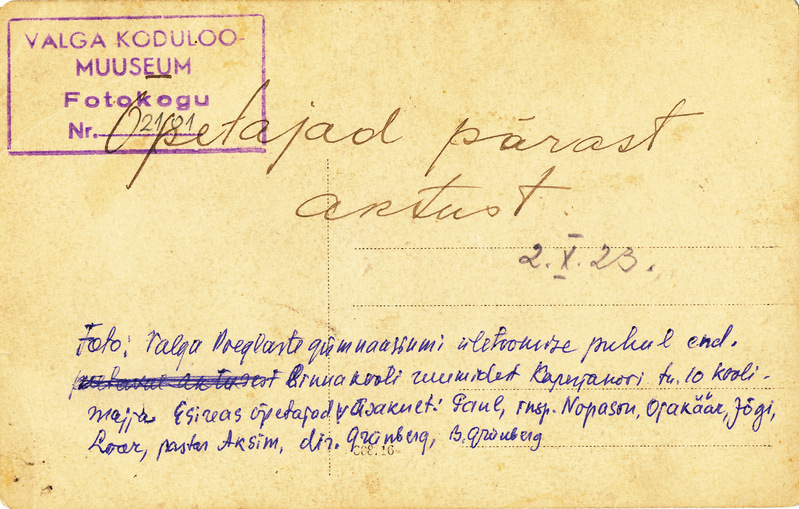 VALGA KODULOO-
MUUSEUM
Fotokogu
Nr. 21/81
Õpetajad pärast
aktust.
2. X. 23.
Foto: Valga Poeglaste gümnaasiumi ületoomise puhul end.
linnakooli ruumidest Kuperjanovi tn. 10 kooli-
majja Esireas õpetajad vasakult: Paul, insp. Nopason, Ojakäär, Jõgi,
Loor, pastor Aksim, dir. Grünberg, B. Grünberg